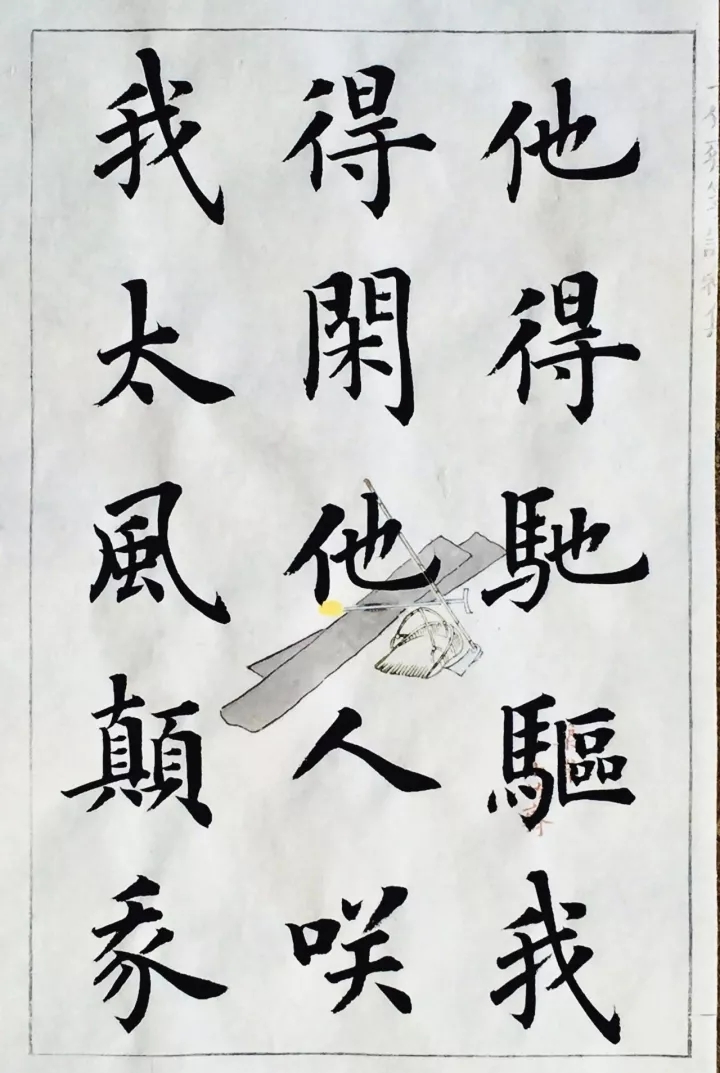 他得馳驅我
得閑他人咲
我太風顛